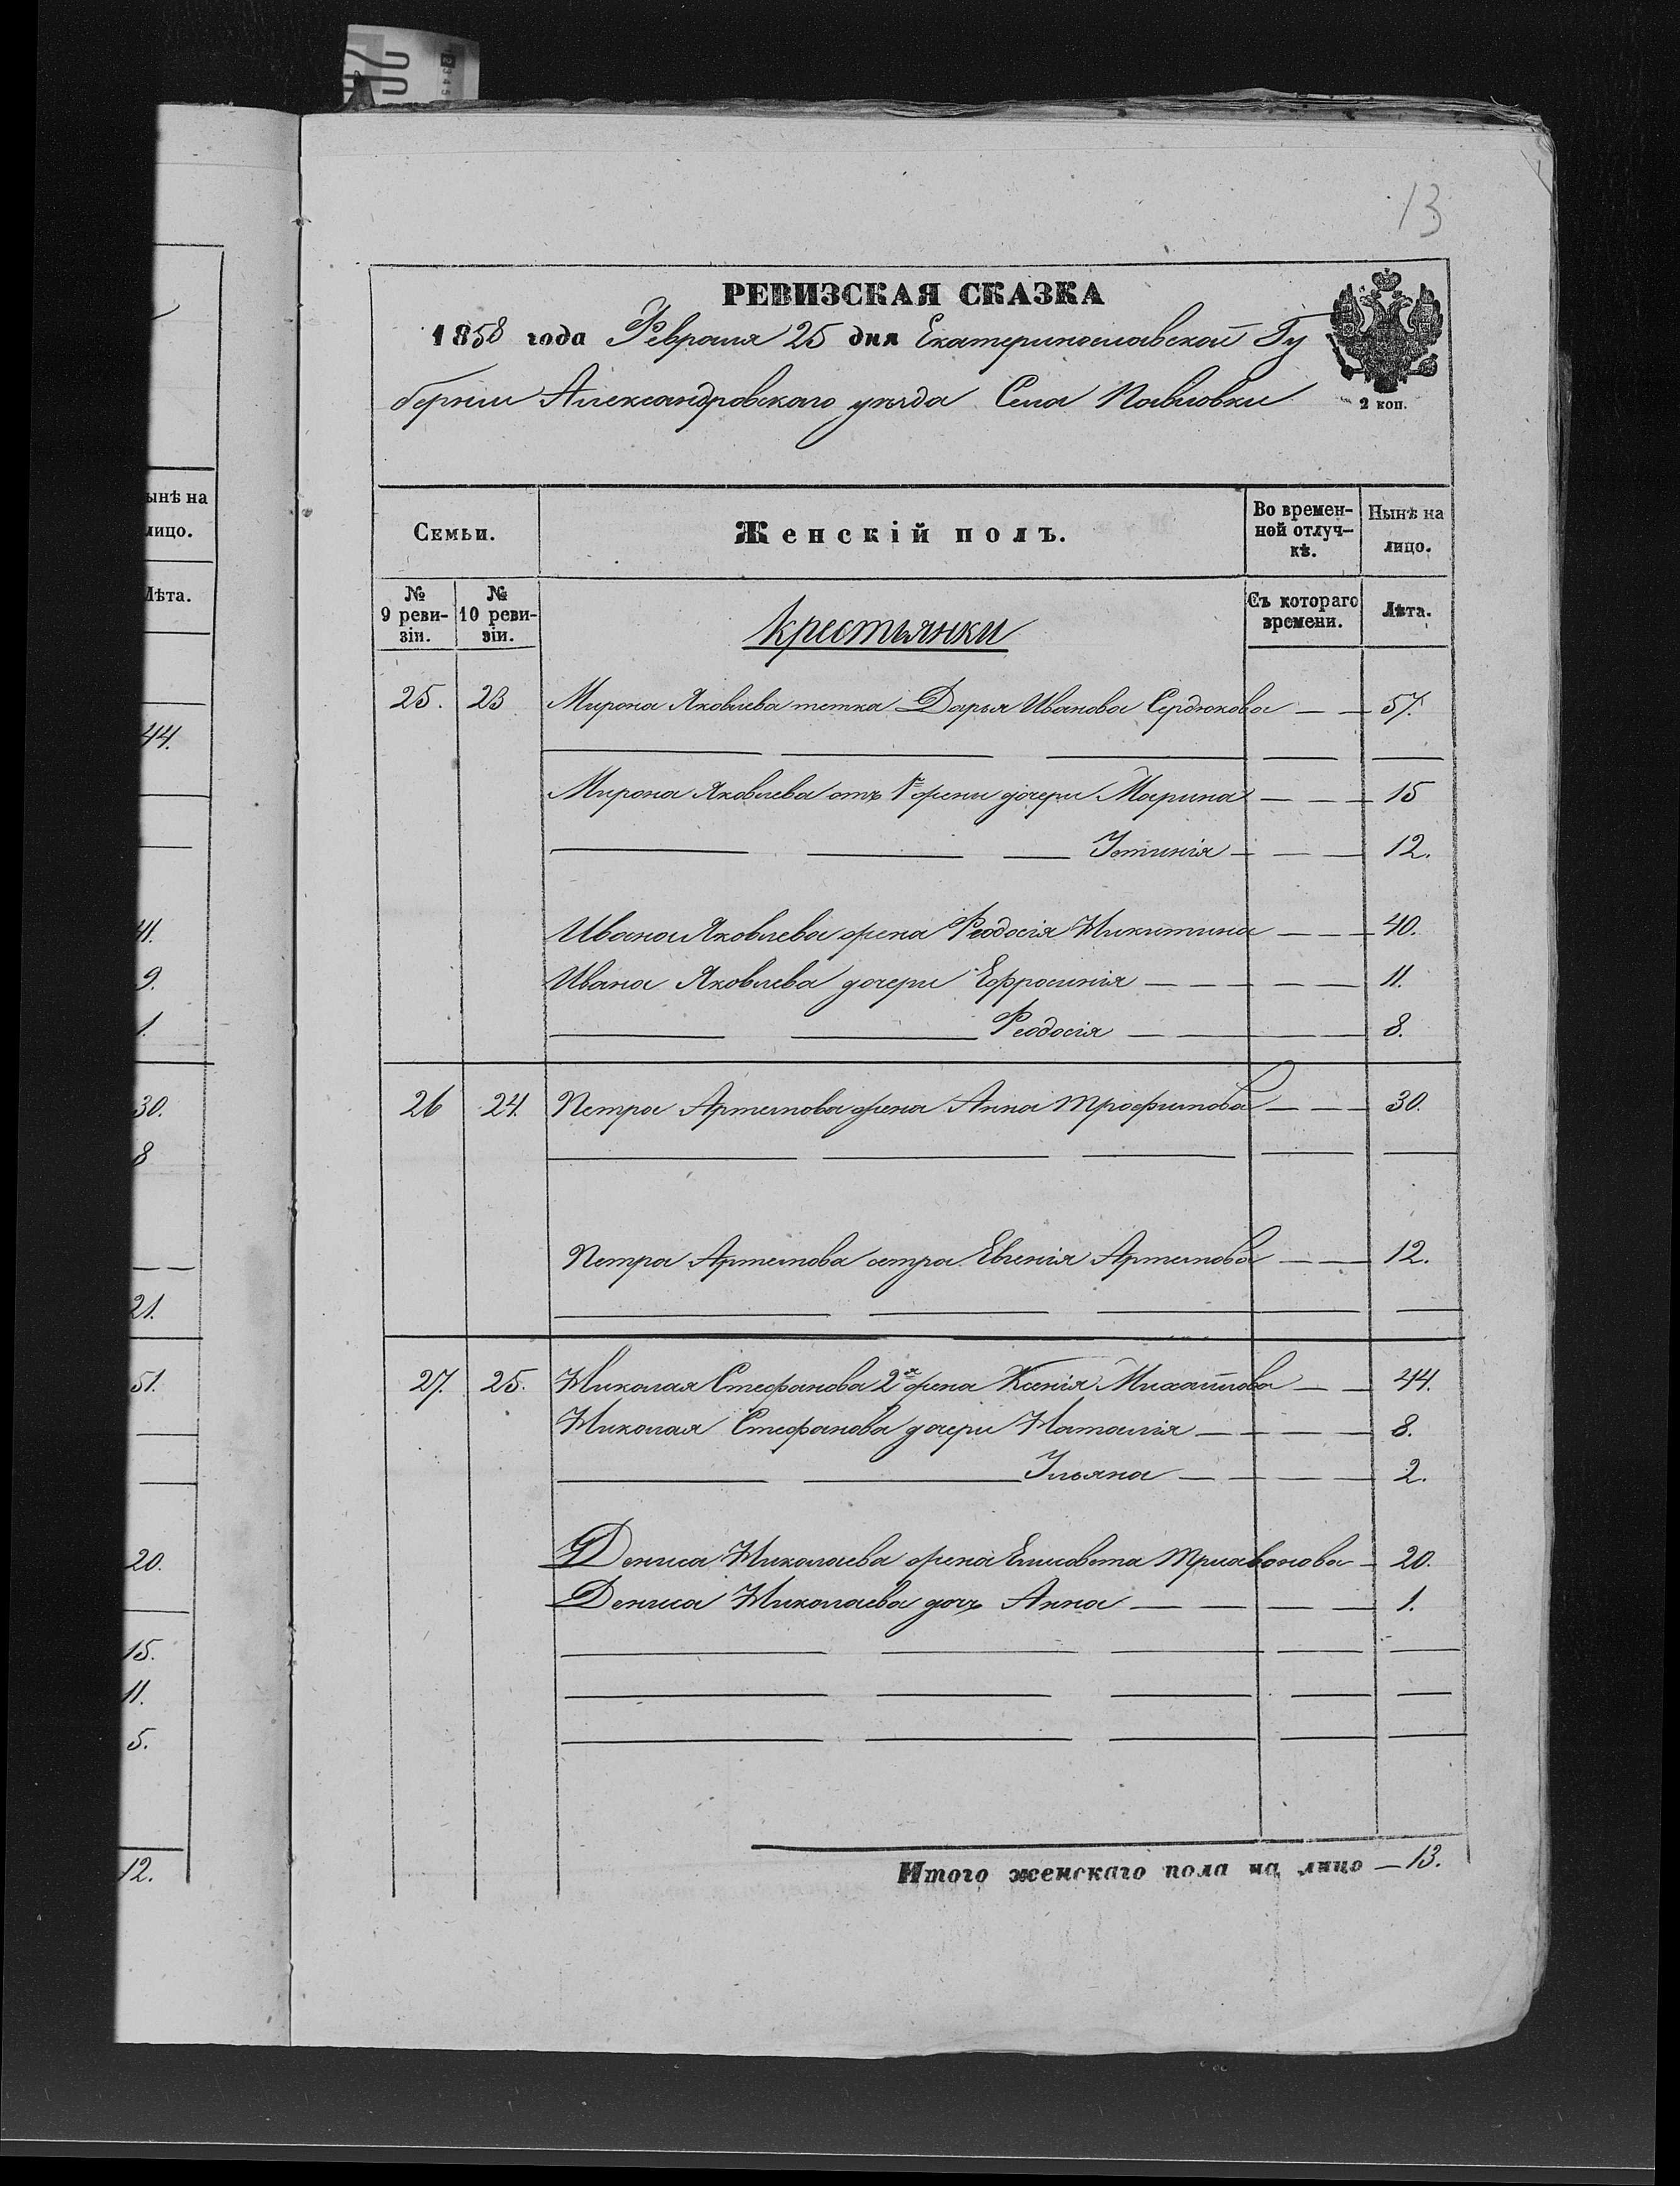 13
РЕВИЗСКАЯ СКАЗКА
1858 года Февраля 25 дня Екатеринославской Гу
берніи Александровскаго уѣзда Села Павловки
2 коп.
Семьи.
Женскій полъ.
Во времен-
ной отлуч-
кѣ.
Нынѣ на
лицо.
№
9 реви-
зіи.
№
10 реви-
зіи.
Крестьянки
Съ котораго
времени.
Лѣта.
25. 23 Мирона Яковлева тетка Дарья Иванова Сердюкова 57.
Мирона Яковлева отъ 1й жены дочери Марина 15
Устинія 12.
Ивана Яковлева жена Феодосія Никитина 40.
Ивана Яковлева дочери Ефросинія 11.
Феодосія 8.
26 24. Петра Артемова жена Анна Трофимова 30.
Петра Артемова сстра Евгенія Артемова 12.
27. 25. Николая Стефанова 2я жена Ксенія Михайлова 44.
Николая Стефанова дочери Наталія 8.
Ульяна 2.
Дениса Николаева жена Елисавета 20.
Дениса Николаева дочь Анна 1.
Итого женскаго пола на лицо 13.
ынѣ на
лицо.
Лѣта.
44.
41.
9.
1.
30.
8
21.
51.
20.
15.
11.
5.
12.